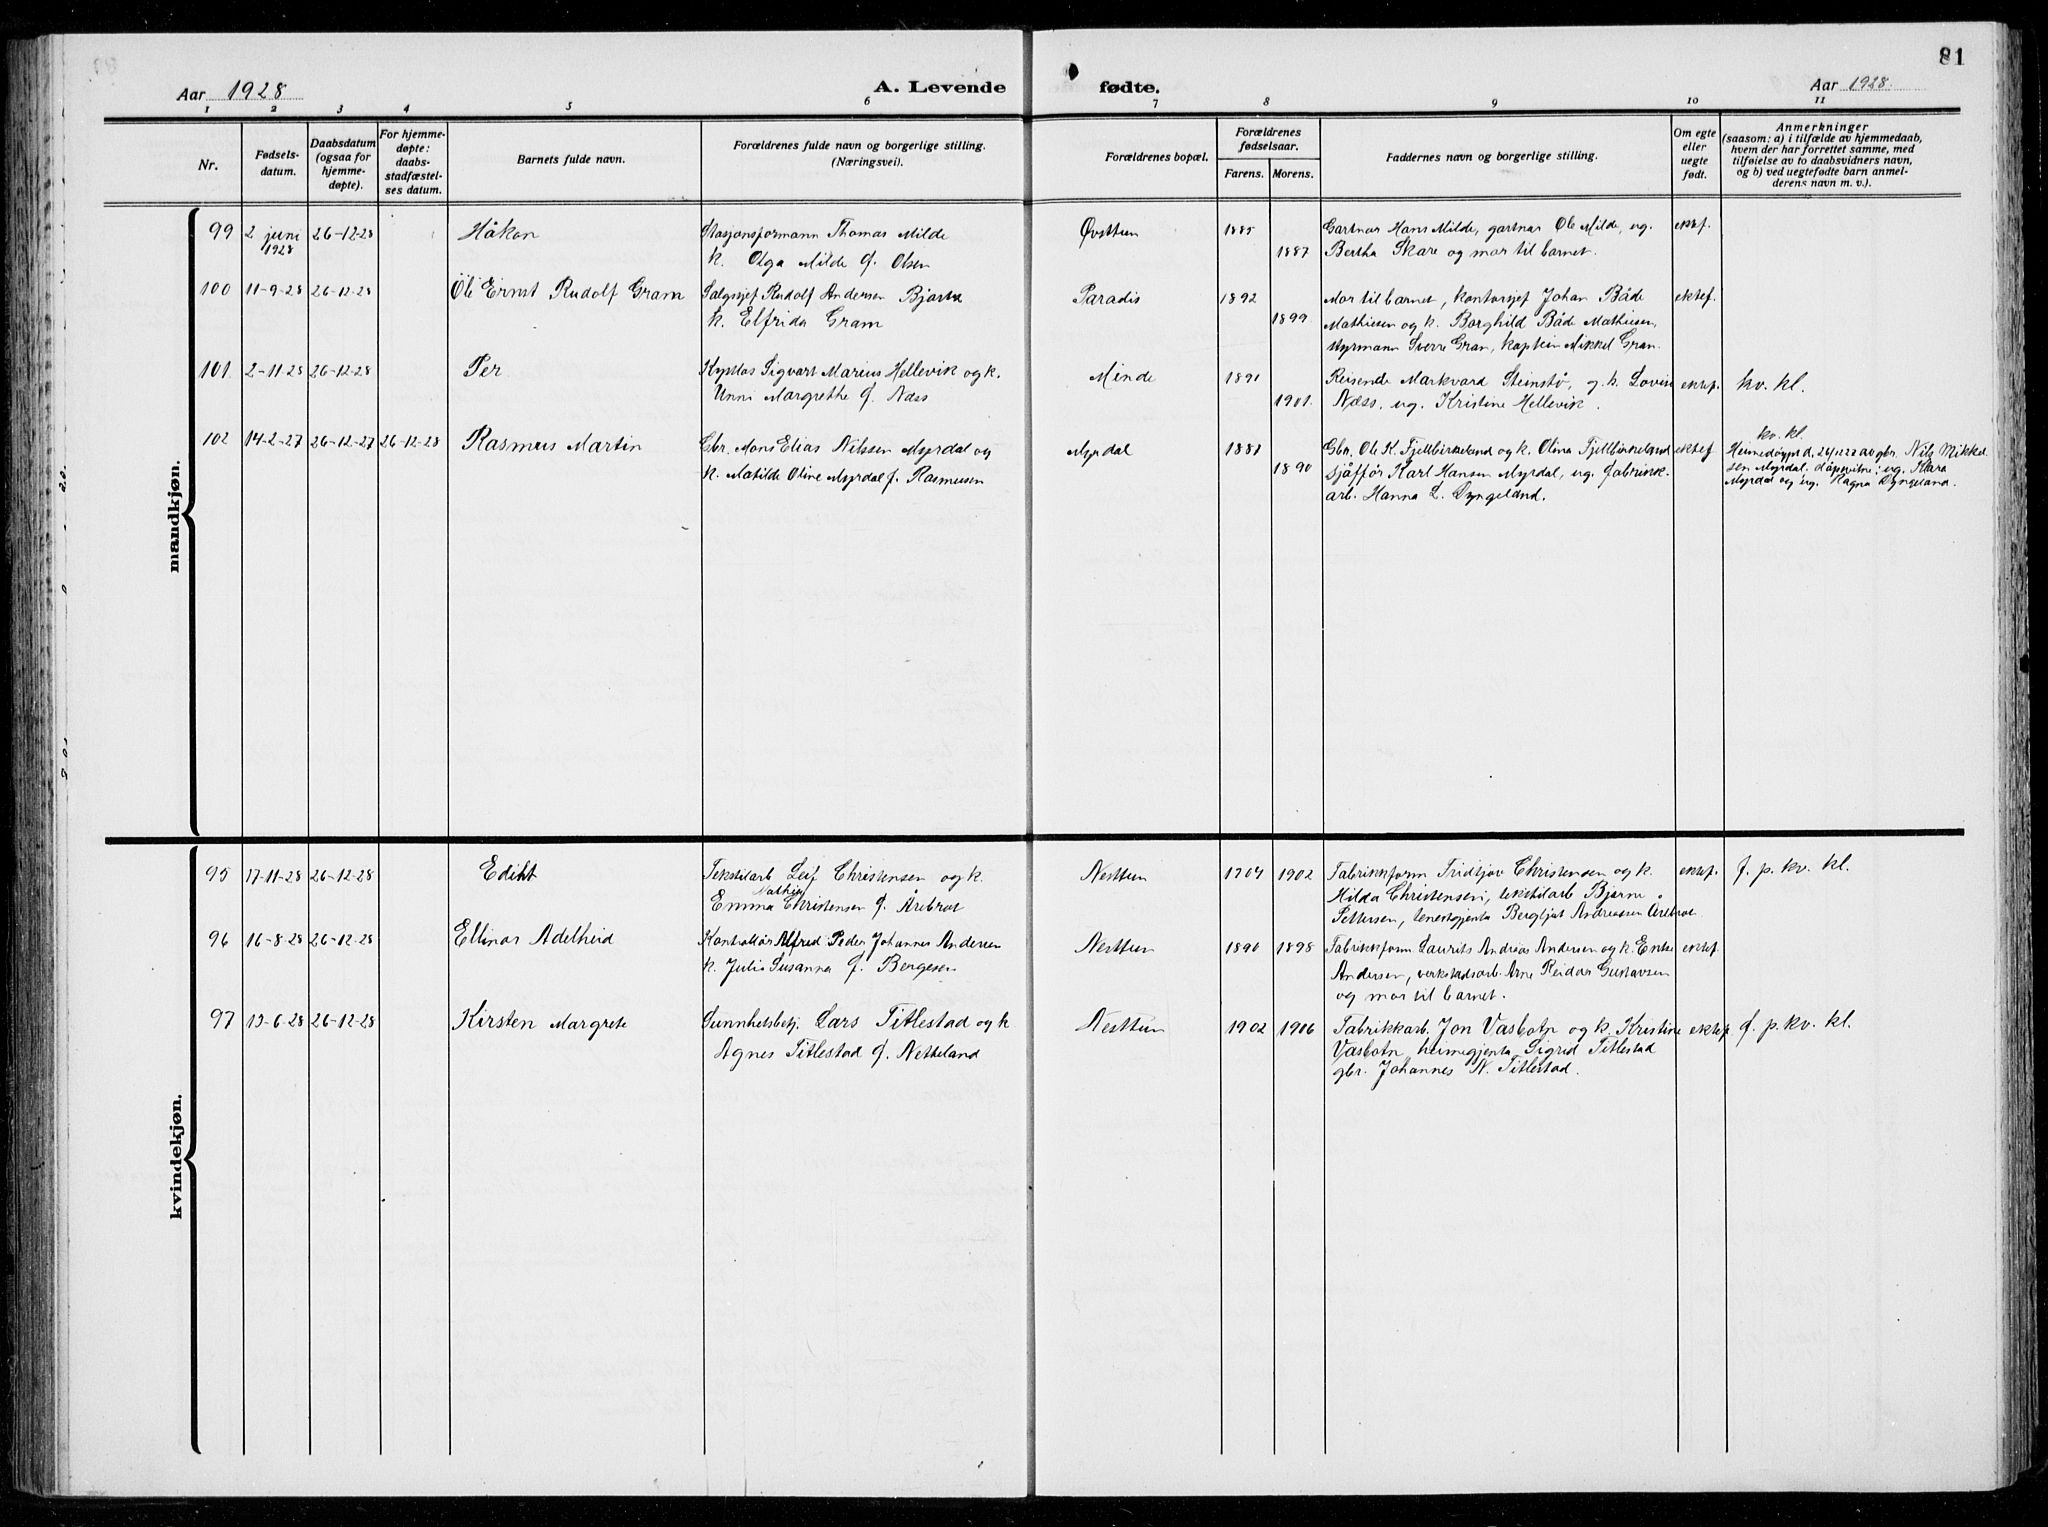 81
Aar 1928
A. Levende
fødte.
Aar 1928.
1 2 3 4 5 6 7 8 9 10 11
Nr.
Fødsels-
datum.
Daabsdatum
(ogsaa for
hjemme-
døpte).
For hjemme-
døpte:
daabs-
stadfæstel-
ses datum.
Barnets fulde navn.
Forældrenes fulde navn og borgerlige stilling.
(Næringsvei).
Forældrenes bopæl.
Forældrenes
fødselsaar.
Farens. Morens.
Faddernes navn og borgerlige stilling.
Om egte
eller
uegte
født.
Anmerkninger
(saasom: a) i tilfælde av hjemmedaab,
hvem der har forrettet samme, med
tilføielse av to daabsvidners navn,
og b) ved uegtefødte barn anmel-
derens navn m. v.).
mandkjøn.
99 2 juni 1928 26-12-28 Håkon
Stasjonsformann Thomas Milde
k. Olga Milde f. Olsen
Øvsttun 1885 1887
Gartnar Hans Milde, gartnar Ole Milde, ug.
Bertha Skare og mor til barnet.
ektef.
100 11-9-28 26-12-28 Ole Ernst Rudolf Gram
Salgssjef Rudolf Andersen Bjarta
k. Elfrida Gram
Paradis 1892 1899
Mor til barnet, kontorsjef Johan Både
Mathiesen og k. Borghild Både Mathiesen,
styrmann Sverre Gran, kaptein Mikkel Gran.
ektef.
101 2-11-28 26-12-28 Per
Sigvart Marius Hellevik og k.
Unni Margrethe f. Næss
Minde 1891 1901.
Reisende Markvard Steinstø, og k. Lovise
Næss, ug. Kristine Hellevik.
ektef. kv. kl.
102 14-2-27 26-12-27 26-12-28 Rasmus Martin
Gbr. Mons Elias Nilssen Myrdal og
k. Matilde Oline Myrdal f. Rasmussen
Myrdal 1881 1890
Gbr. Ole K. Fjellbirkeland og k. Olina Fjellbirkeland
sjåffør Karl Hansen Myrdal, ug. fabrikk-
arb. Hanna L. Dyngeland.
ektef
kv. kl.
Heimedøypt d. 26/12 27 av gbr. Nils Mikkel
sen Myrdal, dåpsvitne: ug. Klara
Myrdal og ug. Ragna Dyngeland.
kvindekjøn.
95 17-11-28 26-12-28 Edith
Tekstilarb Leif Christensen og k.
Emma Christensen f. Årebrot
Nesttun 1904 1902
Fabrikkform Fridtjov Christensen og k.
Hilda Christensen, tekstilarb Bjarne
Pettersen, tenestgjenta Bergljot Andreassen Årebrot.
ektef. f. p. kv. kl.
96 16-8-28 26-12-28 Ellinor Adelheid
Kontrollør Alfred Peder Johannes Andersen
k. Julie Susanna f. Bergesen
Nesttun 1890 1898
Fabrikkform Laurits Andreas Andersen og k. Enke
Andersen, verkstadsarb. Arne Reidar Gustavsen
og mor til barnet.
ektef.
97 19-6-28 26-12-28 Kirsten Margrete
Sunnhetsbetj. Lars Titlestad og k
Agnes Titlestad f. Netteland
Nesttun 1902 1906
Fabrikkarb. Jon Vasbotn og k. Kristine
Vasbotn, heimegjenta Sigrid Titlestad
gbr. Johannes N. Titlestad.
ektef. f. p. kv. kl.